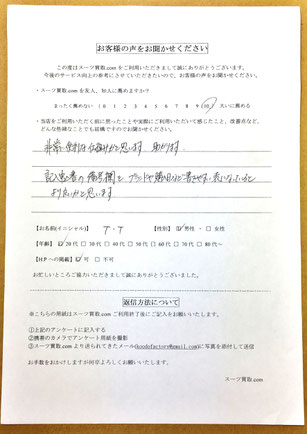 お客様の声をお聞かせください
この度はスーツ買取.comをご利用いただきまして誠にありがとうございます。
今後のサービス向上の参考にさせていただきたいので、お客様の声をお聞かせください。
・スーツ買取.comを友人、知人に薦めますか?
まったく薦めない (0 1 2 3 4 5 6 7 8 9 10) 大いに薦める
・当店をご利用いただく前に思ったことや実際にご利用いただいて感じたこと、改善点など、
どんな些細なことでも結構ですのでお聞かせください。
非常に便利な仕組みかと思います。助かります。
記入用紙の備考欄も、ブランドや
書きやすい
になっていると
より良いかと思います
【お名前(イニシャル)】 T・T 【性別】 ☑男性・□女性
【年齢】 ☑20代 □30代 □40代 □50代 □60代 □70代 □80代~
【HPへの掲載】 ☑可 □不可
お忙しいところご協力いただきまして誠にありがとうございました。
返信方法について
※こちらの用紙はスーツ買取.comご利用終了後にご記入をお願いいたします。
①上記のアンケートに記入する
②携帯のカメラでアンケート用紙を撮影
③スーツ買取.comより送られてきたメール(hoodofactory@gmail.com)に写真を添付して送信
お手数をおかけしますが何卒よろしくお願いいたします。
スーツ買取.com